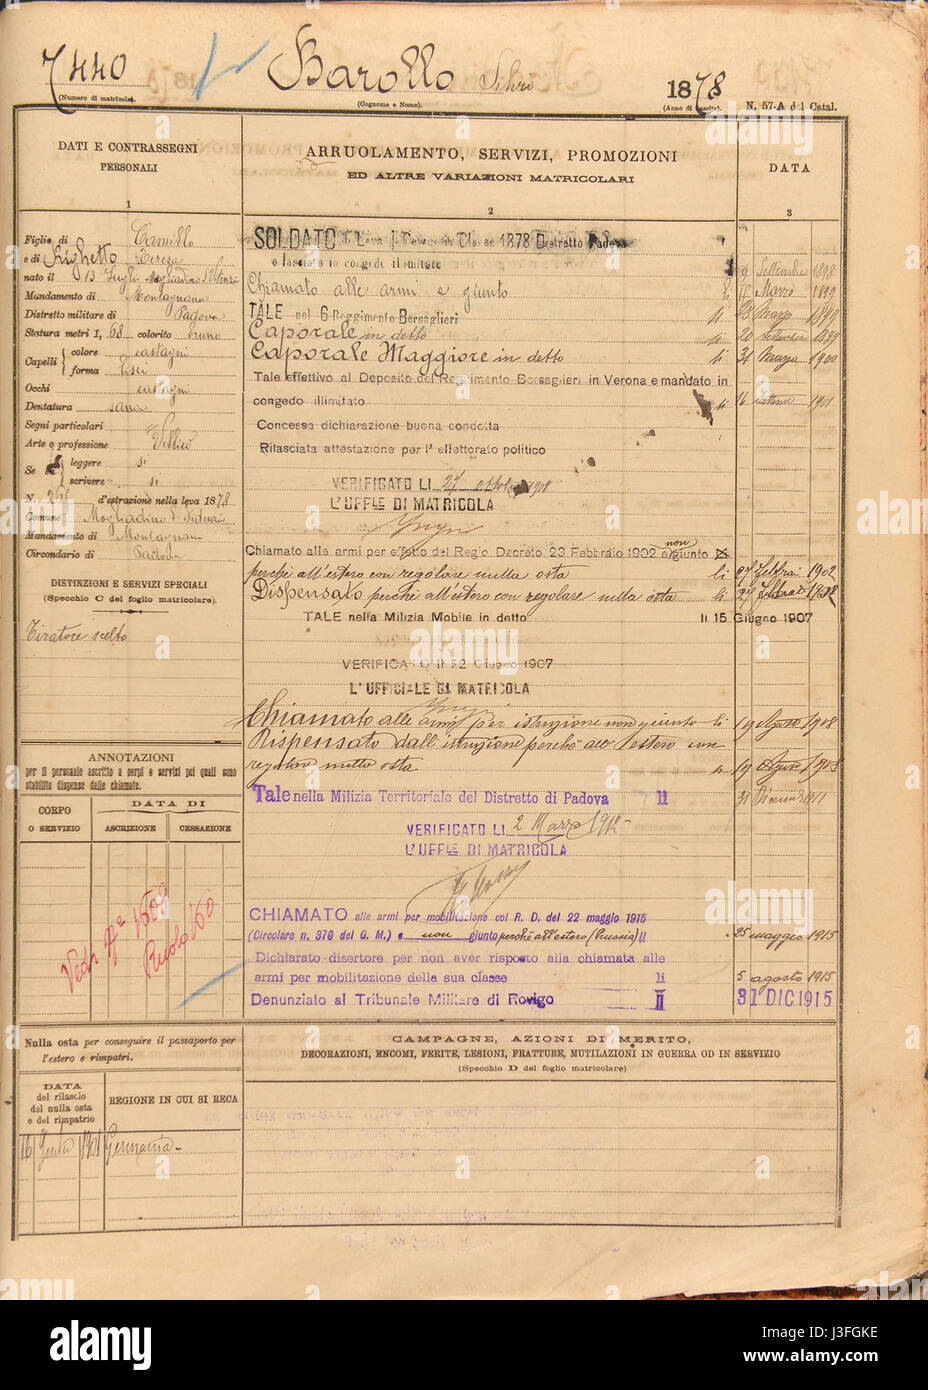 7440 Barollo Silvio 1878
(Numero di matricola). (Cognome e Nome). (Anno di nascita). N. 57-A del Catal.
DATI E CONTRASSEGNI
PERSONALI
1
Figlio di Camillo
e di Righetto Teresa
nato il 13 Luglio Megliadino S. Vitenzio
Mandamento di Montagnana
Distretto militare di Padova
Statura metri 1, 68 colorito bruno
Capelli colore castagni
forma lisci
Occhi castagni
Dentatura sana
Segni particolari
Arte o professione Villico
Se leggere si
scrivere si
N. 268 d'estrazione nella leva 1878
Comune Megliadino S.
Mandamento di Montagnana
Circondario di Padova
DISTINZIONI E SERVIZI SPECIALI
(Specchio C del foglio matricolare).
Tiratore scelto
ANNOTAZIONI
per il personale ascritto a corpi e servizi pei quali sono
stabilite dispense dalle chiamate.
CORPO
O SERVIZIO
DATA DI
ASCRIZIONE CESSAZIONE
Ruolo 160
Nulla osta per conseguire il passaporto per
l'estero e rimpatri.
DATA
del rilascio
del nulla osta
e del rimpatrio
REGIONE IN CUI SI RECA
16 1901 Germania
ARRUOLAMENTO, SERVIZI, PROMOZIONI
ED ALTRE VARIAZIONI MATRICOLARI
DATA
2
3
SOLDATO di Leva 1ª Categoria Classe 1878 Distretto Padova
e lasciato in congedo illimitato 9 Settembre 1898
Chiamato alle armi e giunto li Marzo 1899
TALE nel 6 Reggimento Bersaglieri li 28 Marzo 1899
Caporale in detto li 20 Settembre 1899
Caporale Maggiore in detto li 31 Marzo 1900
Tale effettivo al Deposito del Reggimento Bersaglieri in Verona e mandato in
congedo illimitato li 16 1901
Concessa dichiarazione buona condotta
Rilasciata attestazione per l'elettorato politico
VERIFICATO LI 27 ottobre 1901
L'UFFLE DI MATRICOLA
Chiamato alle armi per effetto del Regio Decreto 23 Febbraio 1902 e non giunto
perchè all'estero con regolare nulla osta li 27 febbraio 1902
Dispensato perchè all'estero con regolare nulla osta li 27 febbraio
TALE nella Milizia Mobile in detto li 15 Giugno 1907
VERIFICATO li 22 Giugno 1907
L'UFFICIALE DI MATRICOLA
Chiamato alle armi per istruzione non giunto li 19 Agosto 1908
Dispensato dall'istruzione perchè all'estero con
regolare nulla osta li 19 Agosto 1908
Tale nella Milizia Territoriale del Distretto di Padova li 31 Dicembre 1911
VERIFICATO LI 2 Marzo 1912
L'UFFLE DI MATRICOLA
CHIAMATO alle armi per mobilitazione col R. D. del 22 maggio 1915
(Circolare n. 370 del G. M.) e non giunto perchè all'estero (Prussia) li 25 maggio 1915
Dichiarato disertore per non aver risposto alla chiamata alle
armi per mobilitazione della sua classe li 5 agosto 1915
Denunziato al Tribunale Militare di Rovigo li 31 DIC. 1915
CAMPAGNE, AZIONI DI MERITO,
DECORAZIONI, ENCOMI, FERITE, LESIONI, FRATTURE, MUTILAZIONI IN GUERRA OD IN SERVIZIO
(Specchio D del foglio matricolare)
alamy
Image ID: J3FGKE
www.alamy.com